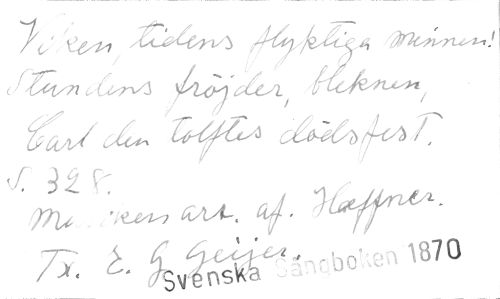 Viken, tidens flyktiga minnen!
Stundens fröjder, bleknen,
Carl den tolftes dödsfest.
S. 328.
Musiken arr. af. Hæffner.
Tx. E. G. Geijer.
Svenska Sångboken 1870